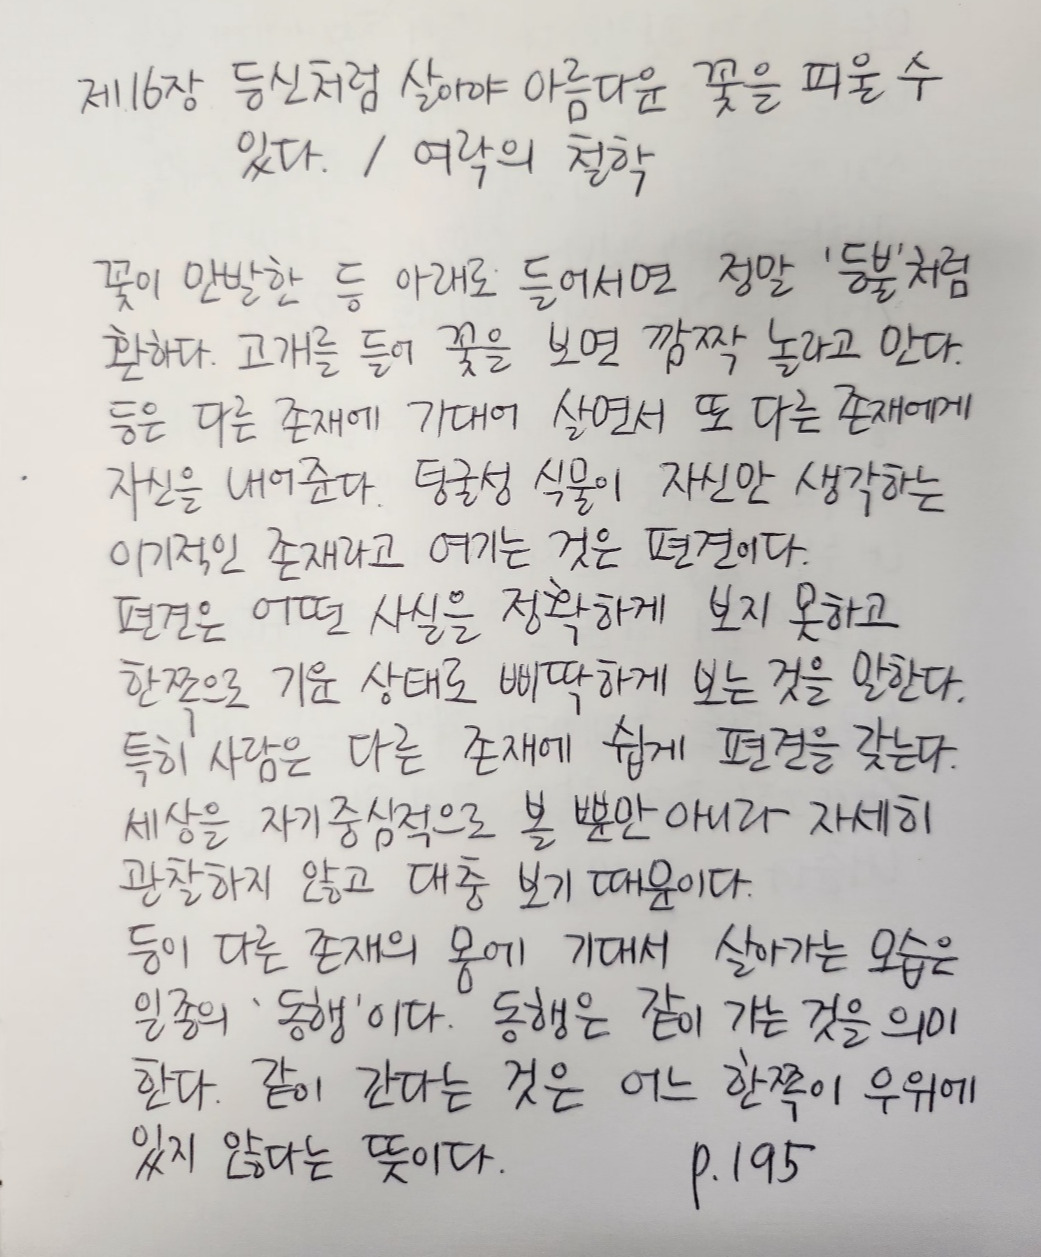 제16장 등신처럼 살아야 아름다운 꽃을 피울 수
있다. / 여락의 철학
꽃이 만발한 등 아래로 들어서면 정말 '등불'처럼
환하다. 고개를 들어 꽃을 보면 깜짝 놀라고 만다.
등은 다른 존재에 기대어 살면서 또 다른 존재에게
자신을 내어준다. 덩굴성 식물이 자신만 생각하는
이기적인 존재라고 여기는 것은 편견이다.
편견은 어떤 사실을 정확하게 보지 못하고
한쪽으로 기운 상태로 삐딱하게 보는 것을 말한다.
특히 사람은 다른 존재에 쉽게 편견을 갖는다.
세상을 자기중심적으로 볼 뿐만 아니라 자세히
관찰하지 않고 대충 보기 때문이다.
등이 다른 존재의 몸에 기대서 살아가는 모습은
일종의 '동행'이다. 동행은 같이 가는 것을 의미
한다. 같이 간다는 것은 어느 한쪽이 우위에
있지 않다는 뜻이다. p.195